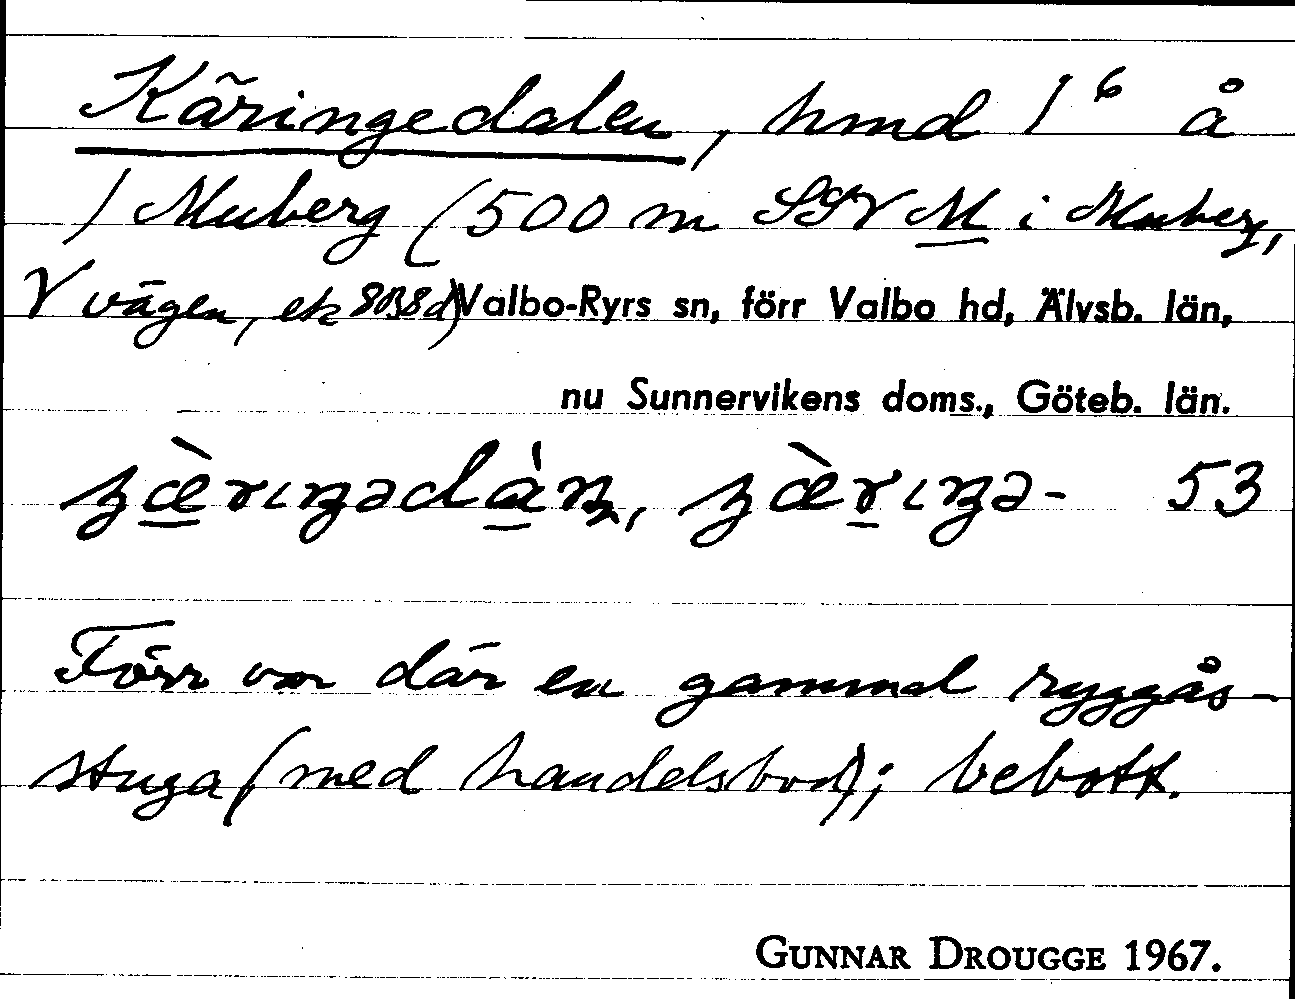 Käringedalen, hmd 1⁶ å
/ Muberg (500 m SSV M i Muberg,
V vägen, ek 8B8d) Valbo-Ryrs sn, förr Valbo hd, Älvsb. län,
nu Sunnervikens doms., Göteb. län.
53
Förr var där en gammal ryggås-
stuga (med handelsbod); bebott.
GUNNAR DROUGGE 1967.